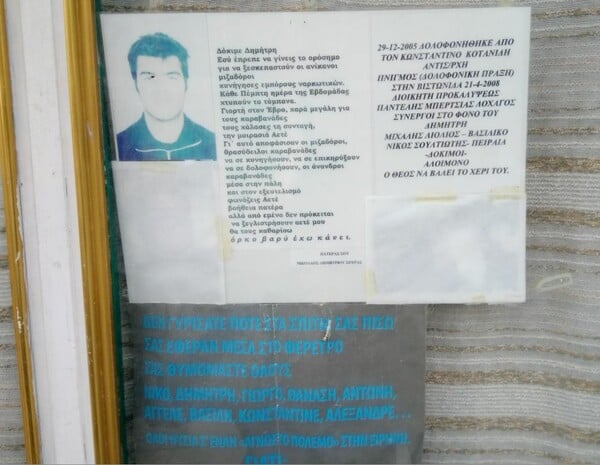 Δόκιμε Δημήτρη
Εσύ έπρεπε να γίνεις το ορόσημο
για να ξεσκεπαστούν οι ανίκανοι
μιζαδόροι
κυνήγησες εμπόρους ναρκωτικών.
Κάθε Πέμπτη ημέρα της Εβδομάδας
χτυπούν τα τύμπανα.
Γιορτή στον Έβρο, παρά μεγάλη για
τους καραβανάδες
τους χάλασες τη συνταγή,
την μοιρασιά Αετέ
Γι' αυτό αποφάσισαν οι μιζαδόροι,
θρασύδειλοι καραβανάδες
να σε κυνηγήσουν, να σε επικηρύξουν
να σε δολοφονήσουν, οι άνανδροι
καραβανάδες
μέσα στην πύλη
και στον εξευτελισμό
φωνάζεις Αετέ
βοήθεια πατέρα
αλλά από εμένα δεν πρόκειται
να ξεγλιστρήσουν αετέ μου
θα τους καθαρίσω
όρκο βαρύ έχω κάνει.
ΠΑΤΕΡΑΣ ΣΟΥ
29-12-2005 ΔΟΛΟΦΟΝΗΘΗΚΕ ΑΠΟ
ΤΟΝ ΚΩΝΣΤΑΝΤΙΝΟ ΚΟΤΑΝΙΔΗ
ΑΝΤΙΣ/ΡΧΗ
ΠΝΙΓΜΟΣ (ΔΟΛΟΦΟΝΙΚΗ ΠΡΑΞΗ)
ΣΤΗΝ ΒΙΣΤΩΝΙΔΑ 21-4-2008
ΔΙΟΙΚΗΤΗ ΠΡΟΚΑΛΥΨΕΩΣ
ΠΑΝΤΕΛΗΣ ΜΠΕΡΤΣΙΑΣ ΛΟΧΑΓΟΣ
ΣΥΝΕΡΓΟΙ ΣΤΟ ΦΟΝΟ ΤΟΥ
ΔΗΜΗΤΡΗ
ΜΙΧΑΛΗΣ ΛΙΟΛΙΟΣ – ΒΑΣΙΛΙΚΟ
ΝΙΚΟΣ ΣΟΥΛΤΙΩΤΗΣ- ΠΕΙΡΑΙΑ
-ΔΟΚΙΜΟΙ-
ΑΛΟΙΜΟΝΟ
Ο ΘΕΟΣ ΝΑ ΒΑΛΕΙ ΤΟ ΧΕΡΙ ΤΟΥ.
ΔΕΝ ΓΥΡΙΣΑΤΕ ΠΟΤΕ ΣΤΑ ΣΠΙΤΙΑ ΣΑΣ ΠΙΣΩ
ΣΑΣ ΕΦΕΡΑΝ ΜΕΣΑ ΣΤΟ ΦΕΡΕΤΡΟ
ΣΑΣ ΘΥΜΟΜΑΣΤΕ ΟΛΟΥΣ
ΝΙΚΟ, ΔΗΜΗΤΡΗ, ΓΙΩΡΓΟ, ΘΑΝΑΣΗ, ΑΝΤΩΝΗ,
ΑΓΓΕΛΕ, ΒΑΣΙΛΗ, ΚΩΝΣΤΑΝΤΙΝΕ, ΑΛΕΞΑΝΔΡΕ...
Σ' ΕΝΑΝ «ΑΓΝΩΣΤΟ ΠΟΛΕΜΟ» ΣΤΗΝ ΕΙΡΗΝΗ.